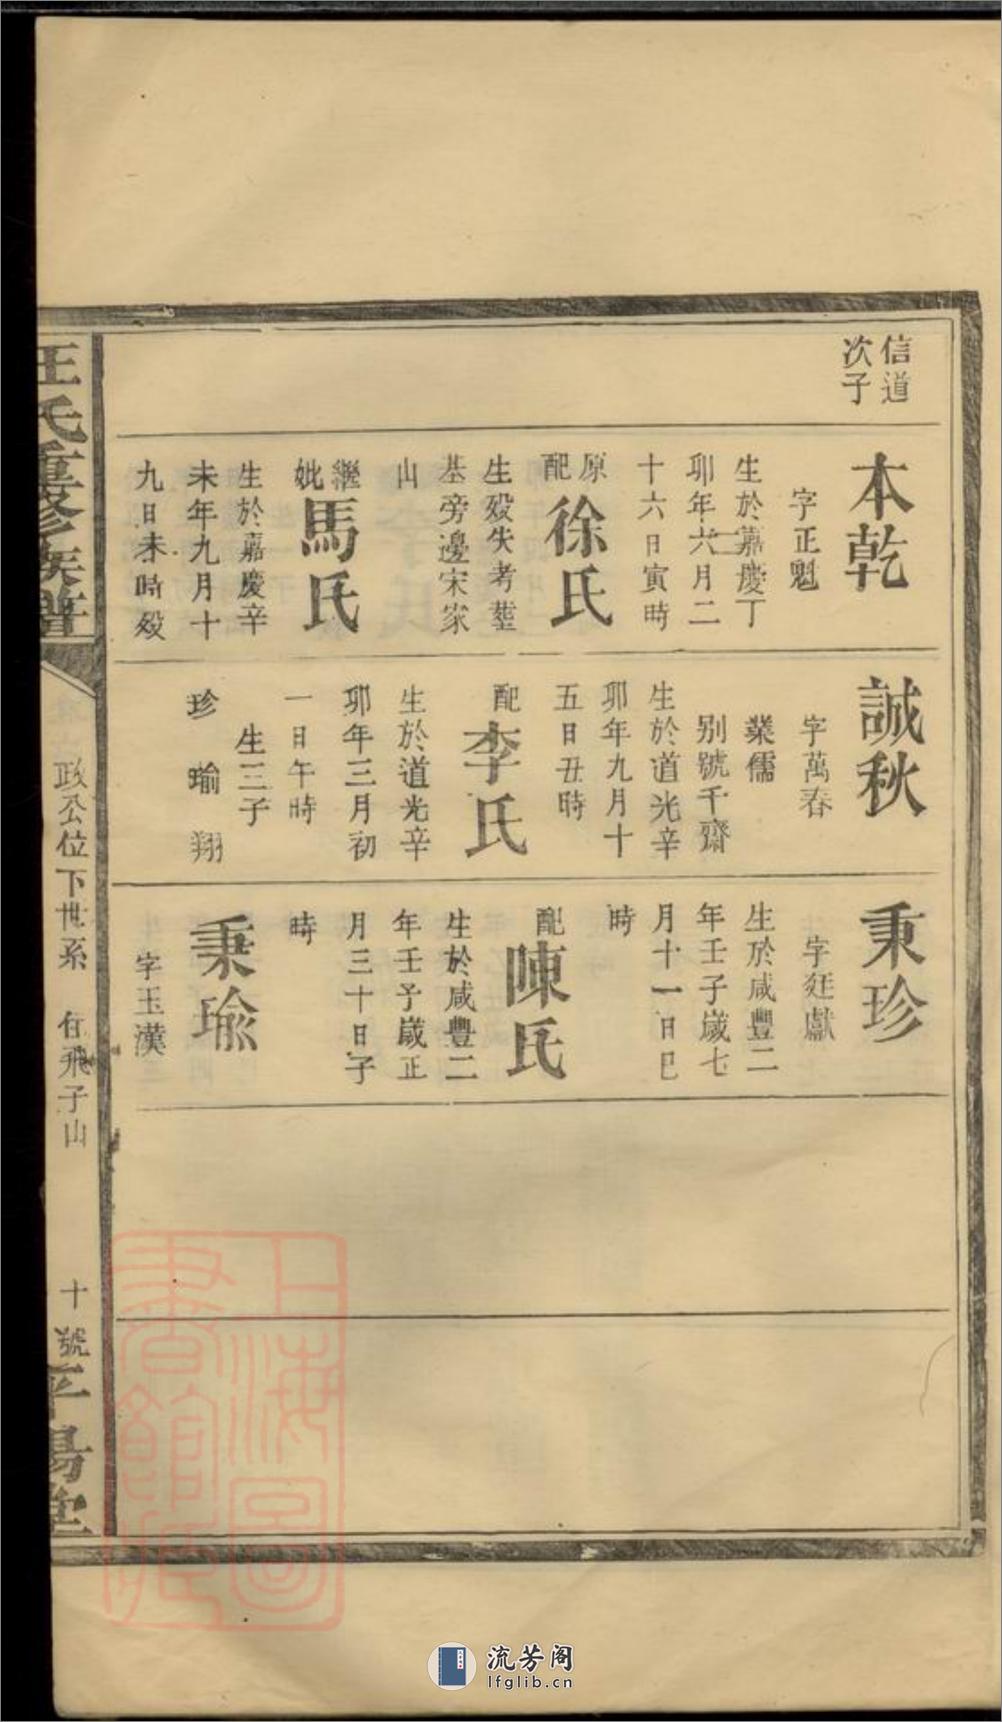 信道
次子
本乾
字正魁
生於嘉慶丁
卯年六月二
十六日寅時
原
配
徐氏
生歿失考塟
基旁邊宋家
山
繼
妣
馬氏
生於嘉慶辛
未年九月十
九日未時歿
誠秋
字萬春
業儒
别號千齋
生於道光辛
卯年九月十
五日丑時
配
李氏
生於道光辛
卯年三月初
一日午時
生三子
珍 瑜 翔
秉珍
字廷獻
生於咸豐二
年壬子歲七
月十一日巳
時
配
陳氏
生於咸豐二
年壬子歲正
月三十日子
時
秉瑜
字玉漢
汪氏重修族譜
政公位下世系
飛子山
十號
平陽堂
上海圖
書館藏
流芳阁
lfglib.cn